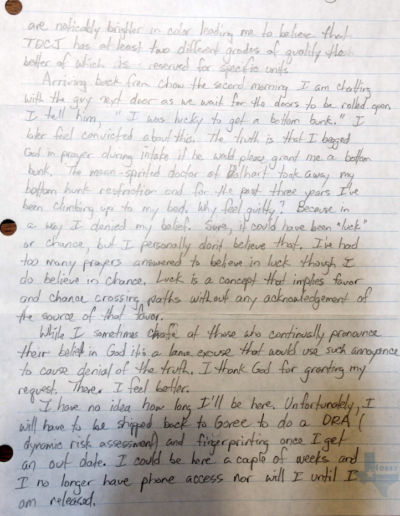 are noticably brighter in color leading me to believe that
TDCJ has at least two different grades of quality the
better of which is reserved for specific units.
Arriving back from chow the second morning I am chatting
with the guy next door as we wait for the doors to be rolled open
I tell him, "I was lucky to get a bottom bunk." I
later feel convicted about this. The truth is that I begged
God in prayer during intake if he would please grant me a bottom
bunk. The mean-spirited doctor of Dalhart took away my
bottom bunk restriction and for the past three years I've
been climbing up to my bed. Why feel guilty? Because in
a way I denied my belief. Sure, it could have been "luck"
or chance, but I personally don't believe that. I've had
too many prayers answered to believe in luck though I
do believe in chance. Luck is a concept that implies favor
and chance crossing paths without any acknowledgement of
the source of that favor.
While I sometimes chafe at those who continually pronounce
their belief in God it's a lame excuse that would use such annoyance
to cause denial of the truth. I thank God for granting my
request. There. I feel better.
I have no idea how long I'll be here. Unfortunately, I
will have to be shipped back to Goree to do a DRA (
dynamic risk assessment) and fingerprinting once I get
an out date. I could be here a couple of weeks and
I no longer have phone access nor will I until I
am released.